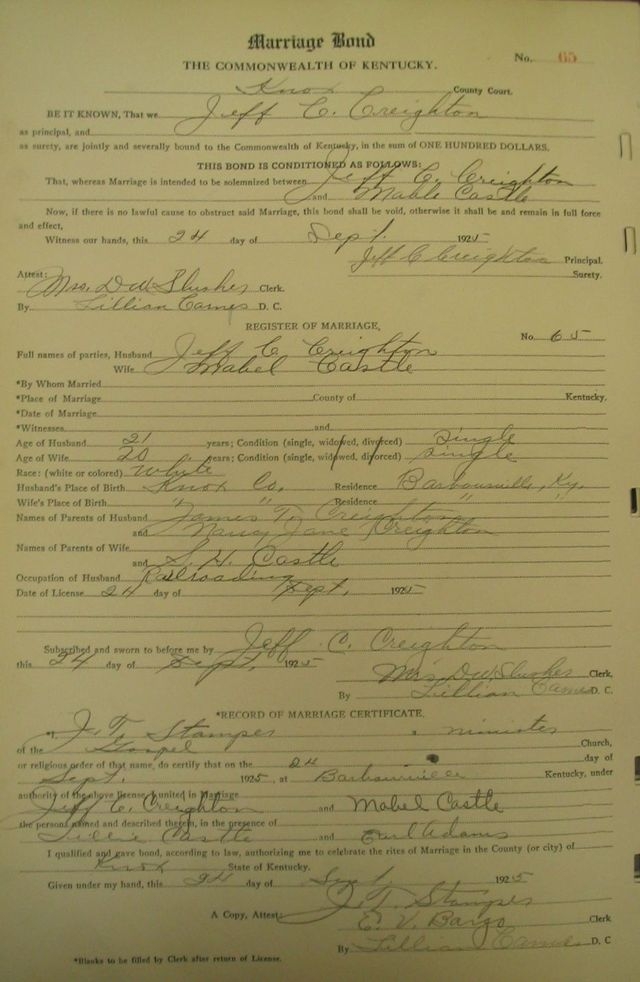 Marriage Bond
No. 65
THE COMMONWEALTH OF KENTUCKY.
Knox County Court.
BE IT KNOWN, That we Jeff C. Creighton
as principal, and
as surety, are jointly and severally bound to the Commonwealth of Kentucky, in the sum of ONE HUNDRED DOLLARS.
THIS BOND IS CONDITIONED AS FOLLOWS:
That, whereas Marriage is intended to be solemnized between Jeff C. Creighton
and Mable Castle
Now, if there is no lawful cause to obstruct said Marriage, this bond shall be void, otherwise it shall be and remain in full force
and effect,
Witness our hands, this 24 day of Sept. 1925
Jeff C Creighton Principal.
Surety.
Attest:
Mrs. D.W. Slusher Clerk.
By Lillian Eames D. C.
REGISTER OF MARRIAGE,
No. 65
Full names of parties, Husband Jeff C Creighton
Wife Mabel Castle
*By Whom Married
*Place of Marriage County of Kentucky.
*Date of Marriage
*Witnesses and
Age of Husband 21 years; Condition (single, widowed, divorced) single
Age of Wife 20 years; Condition (single, widowed, divorced) single
Race: (white or colored) White
Husband's Place of Birth Knox Co. Residence Barbourville, Ky.
Wife's Place of Birth " " Residence " "
Names of Parents of Husband James T. Creighton
and Nancy Jane Creighton
Names of Parents of Wife
and S. H. Castle
Occupation of Husband Railroading
Date of License 24 day of Sept. 1925
Subscribed and sworn to before me by Jeff C. Creighton
this 24 day of Sept. 1925
Mrs D.W. Slusher Clerk,
By Lillian Eames D. C.
*RECORD OF MARRIAGE CERTIFICATE.
I J. T. Stamper a minister
of the Gospel Church,
or religious order of that name, do certify that on the 24 day of
Sept. 1925, at Barbourville Kentucky, under
authority of the above license, I united in Marriage
Jeff C. Creighton and Mabel Castle
the persons named and described therein, in the presence of
Lillie Castle and Earl Adams
I qualified and gave bond, according to law, authorizing me to celebrate the rites of Marriage in the County (or city) of
Knox State of Kentucky.
Given under my hand, this 24 day of Sept 1925
J. T. Stamper
A Copy, Attest: E. V. Bargo Clerk
By Lillian Eames D. C
*Blanks to be filled by Clerk after return of License.